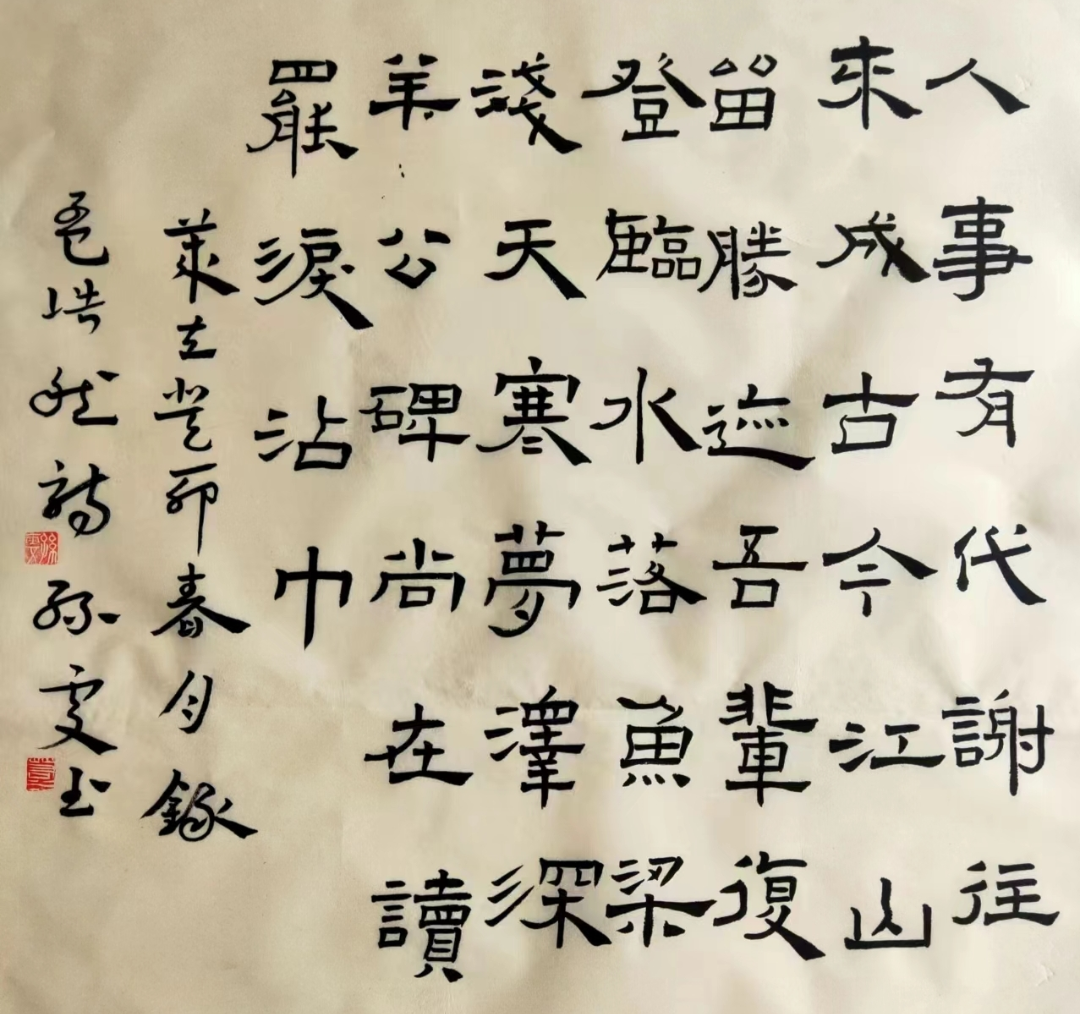 人事有代謝往
來成古今江山
留勝迹吾輩復
登臨水落魚梁
淺天寒夢澤深
羊公碑尚在讀
罷淚沾巾
歲在癸卯春月錄
孟浩然詩孫雯书